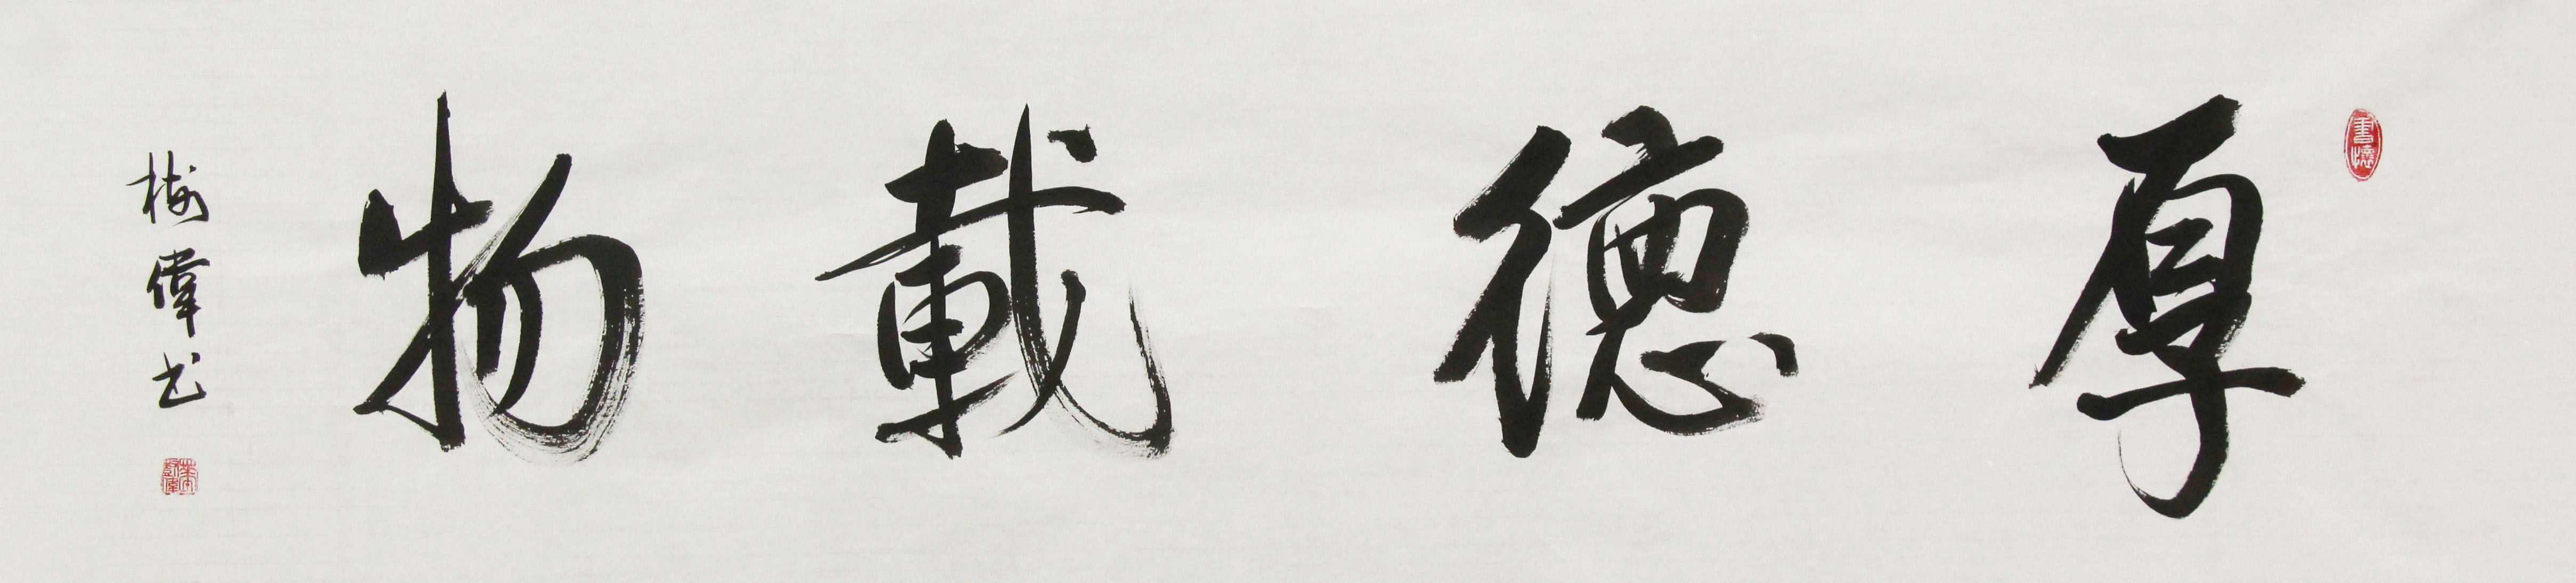 厚德載物
樹偉书